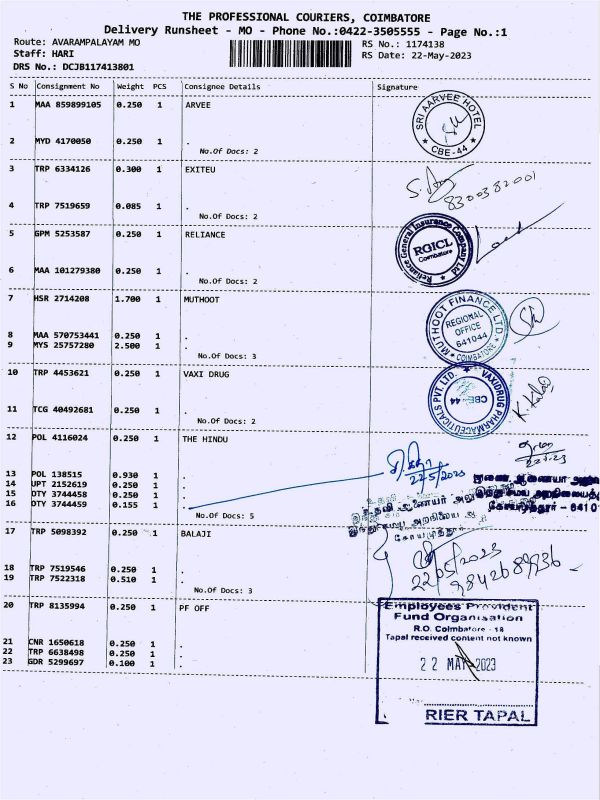 THE PROFESSIONAL COURIERS, COIMBATORE
Delivery Runsheet - MO - Phone No.:0422-3505555 - Page No.:1
Route: AVARAMPALAYAM MO
RS No.: 1174138
Staff: HARI
RS Date: 22-May-2023
DRS No.: DCJB117413801
S No Consignment No Weight PCS Consignee Details Signature
1 MAA 859899105 0.250 1 ARVEE
SRI AARVEE HOTEL
CBE-44
2 MYD 4170050 0.250 1 .
No.Of Docs: 2
3 TRP 6334126 0.300 1 EXITEU
8300382001
4 TRP 7519659 0.085 1 .
No.Of Docs: 2
5 GPM 5253587 0.250 1 RELIANCE
Reliance General Insurance Company Ltd
RGICL
Coimbatore
6 MAA 101279380 0.250 1 .
No.Of Docs: 2
7 HSR 2714208 1.700 1 MUTHOOT
MUTHOOT FINANCE LTD.
REGIONAL
OFFICE
641044
COIMBATORE
8 MAA 570753441 0.250 1 .
9 MYS 25757280 2.500 1 .
No.Of Docs: 3
10 TRP 4453621 0.250 1 VAXI DRUG
VAXIDRUG PHARMACEUTICALS PVT. LTD.
CBE-44
11 TCG 40492681 0.250 1 .
No.Of Docs: 2
12 POL 4116024 0.250 1 THE HINDU
22-5/2023
13 POL 138515 0.930 1 .
14 UPT 2152619 0.250 1 .
15 DTY 3744458 0.250 1 .
16 DTY 3744459 0.155 1 .
No.Of Docs: 5
17 TRP 5098392 0.250 1 BALAJI
22/05/2023
9842689936
18 TRP 7519546 0.250 1 .
19 TRP 7522318 0.510 1 .
No.Of Docs: 3
20 TRP 8135994 0.250 1 PF OFF
Employees Provident
Fund Organisation
R.O. Coimbatore - 18
Tapal received content not known
22 MAY 2023
RIER TAPAL
21 CNR 1650618 0.250 1 .
22 TRP 6638498 0.250 1 .
23 GDR 5299697 0.100 1 .